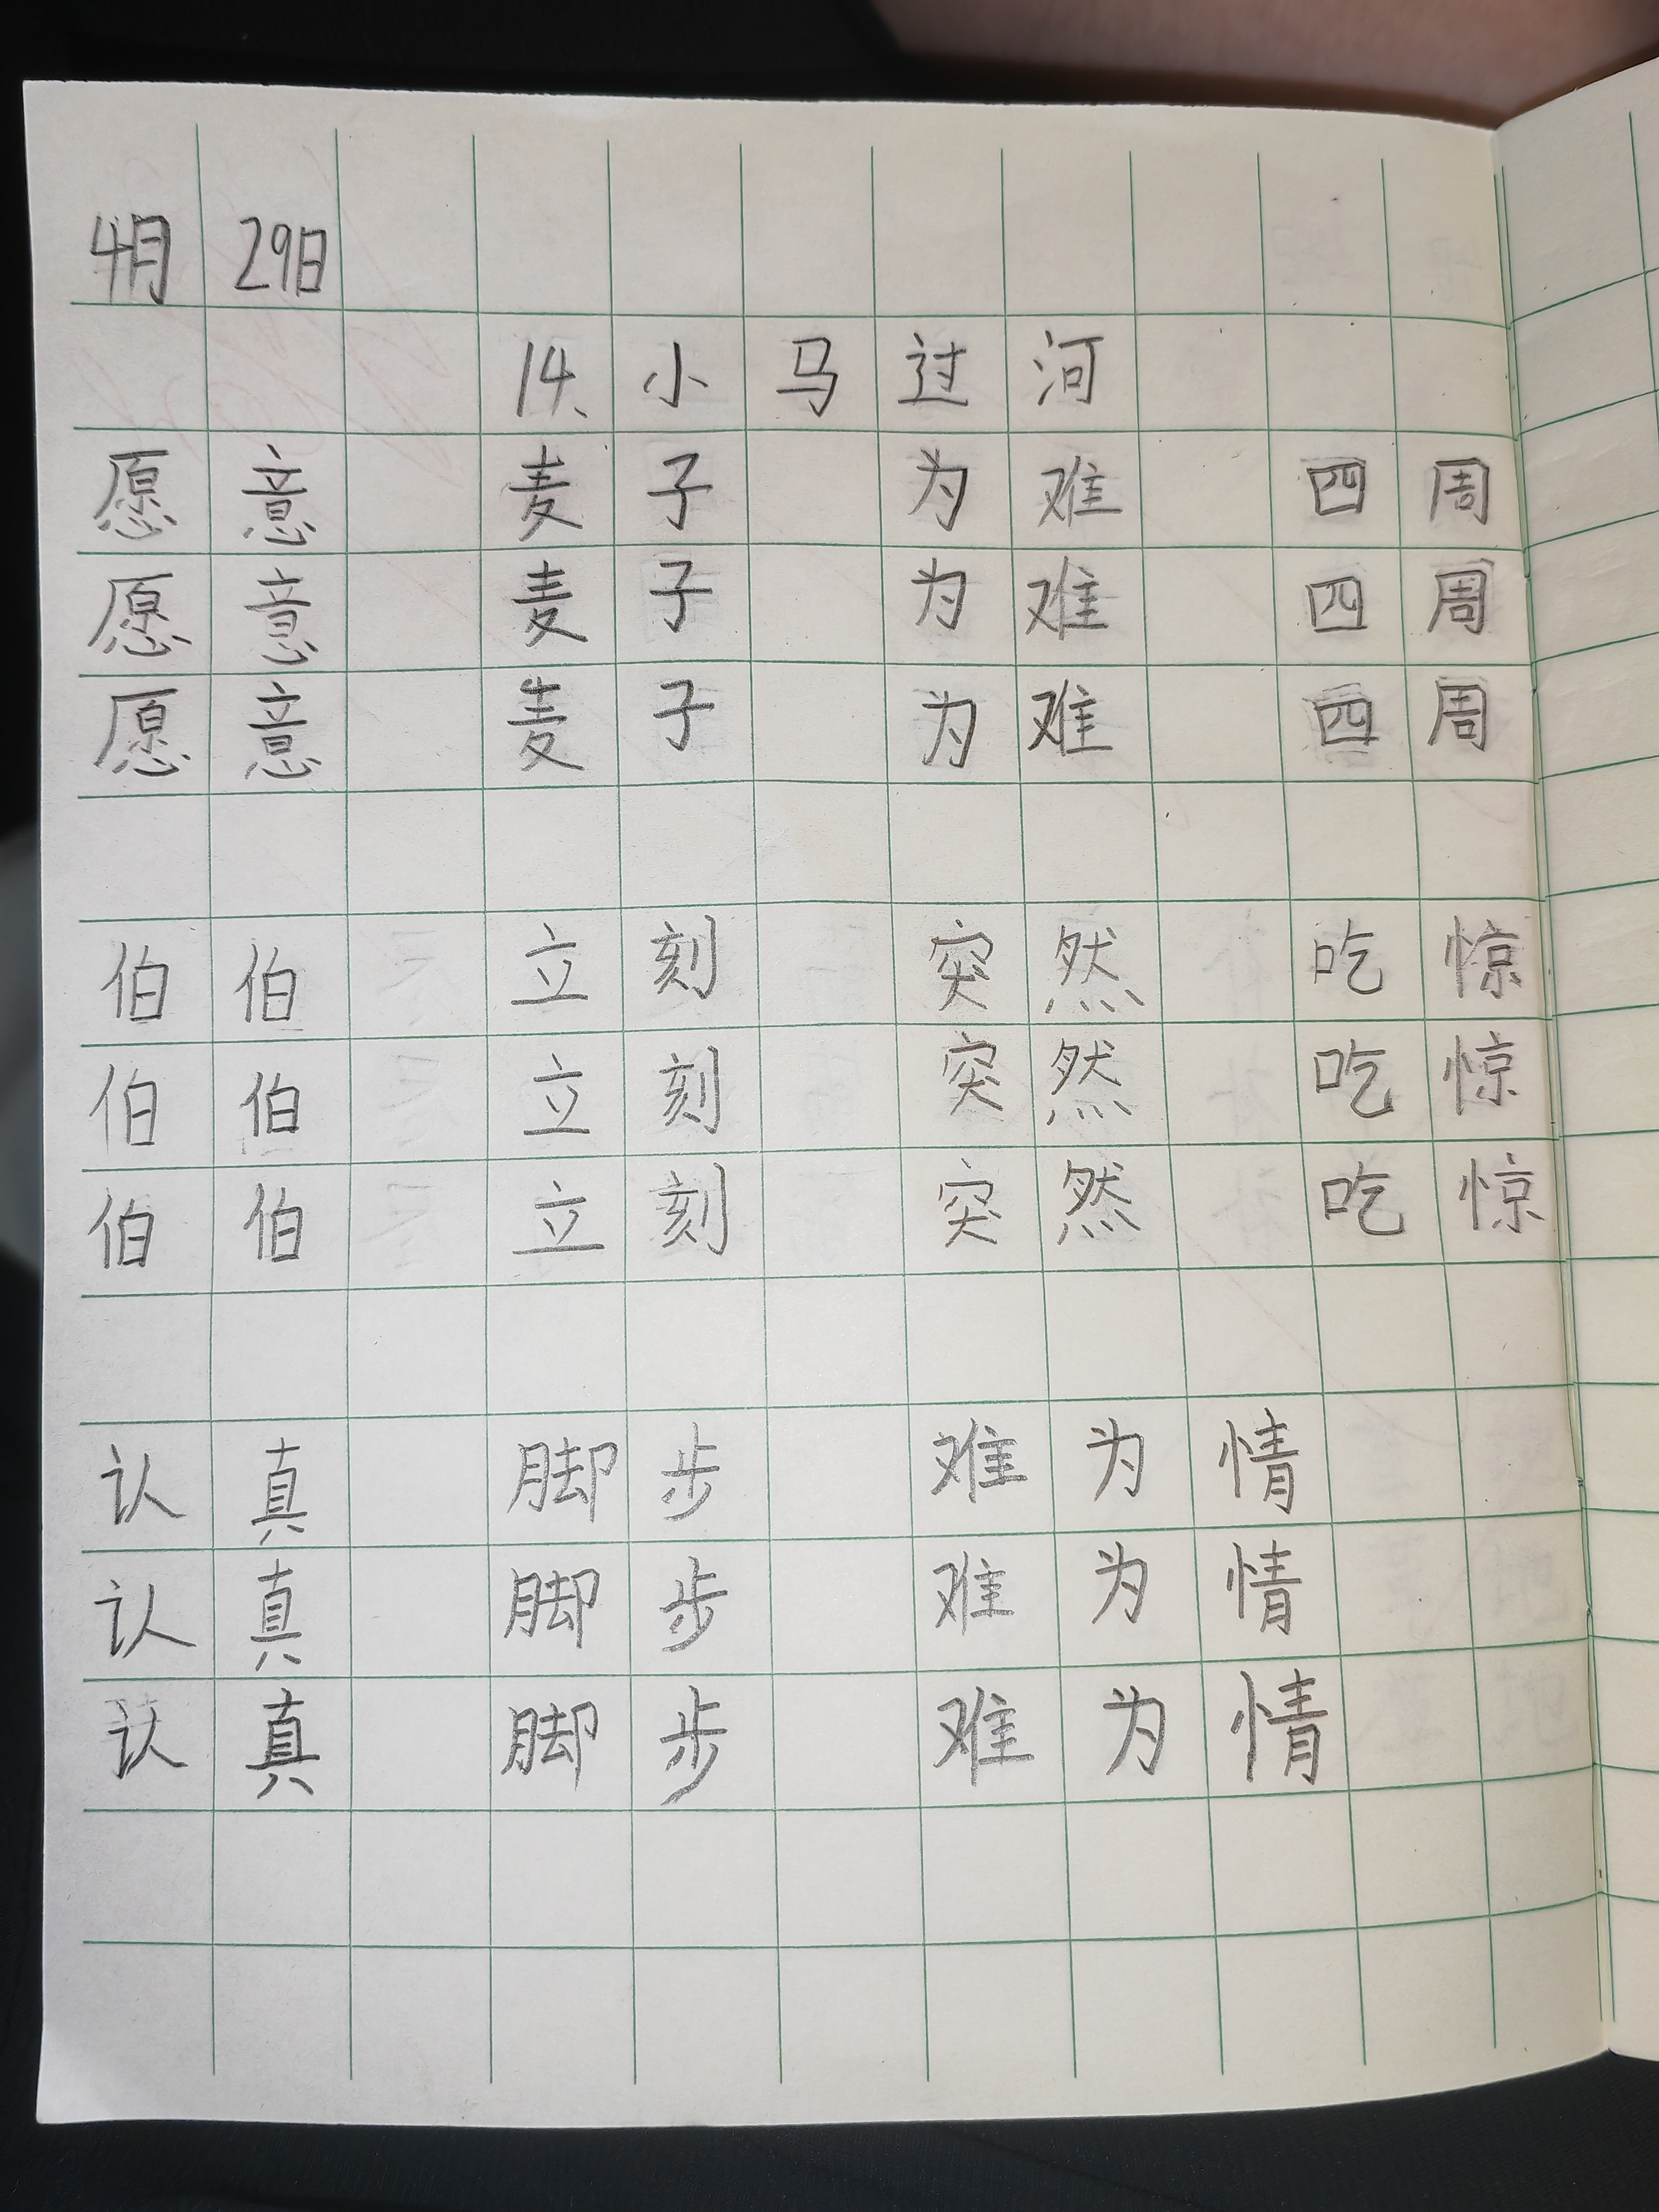 4月 29日
14、小马过河
愿意 麦子 为难 四周
愿意 麦子 为难 四周
愿意 麦子 为难 四周
伯伯 立刻 突然 吃惊
伯伯 立刻 突然 吃惊
伯伯 立刻 突然 吃惊
认真 脚步 难为情
认真 脚步 难为情
认真 脚步 难为情